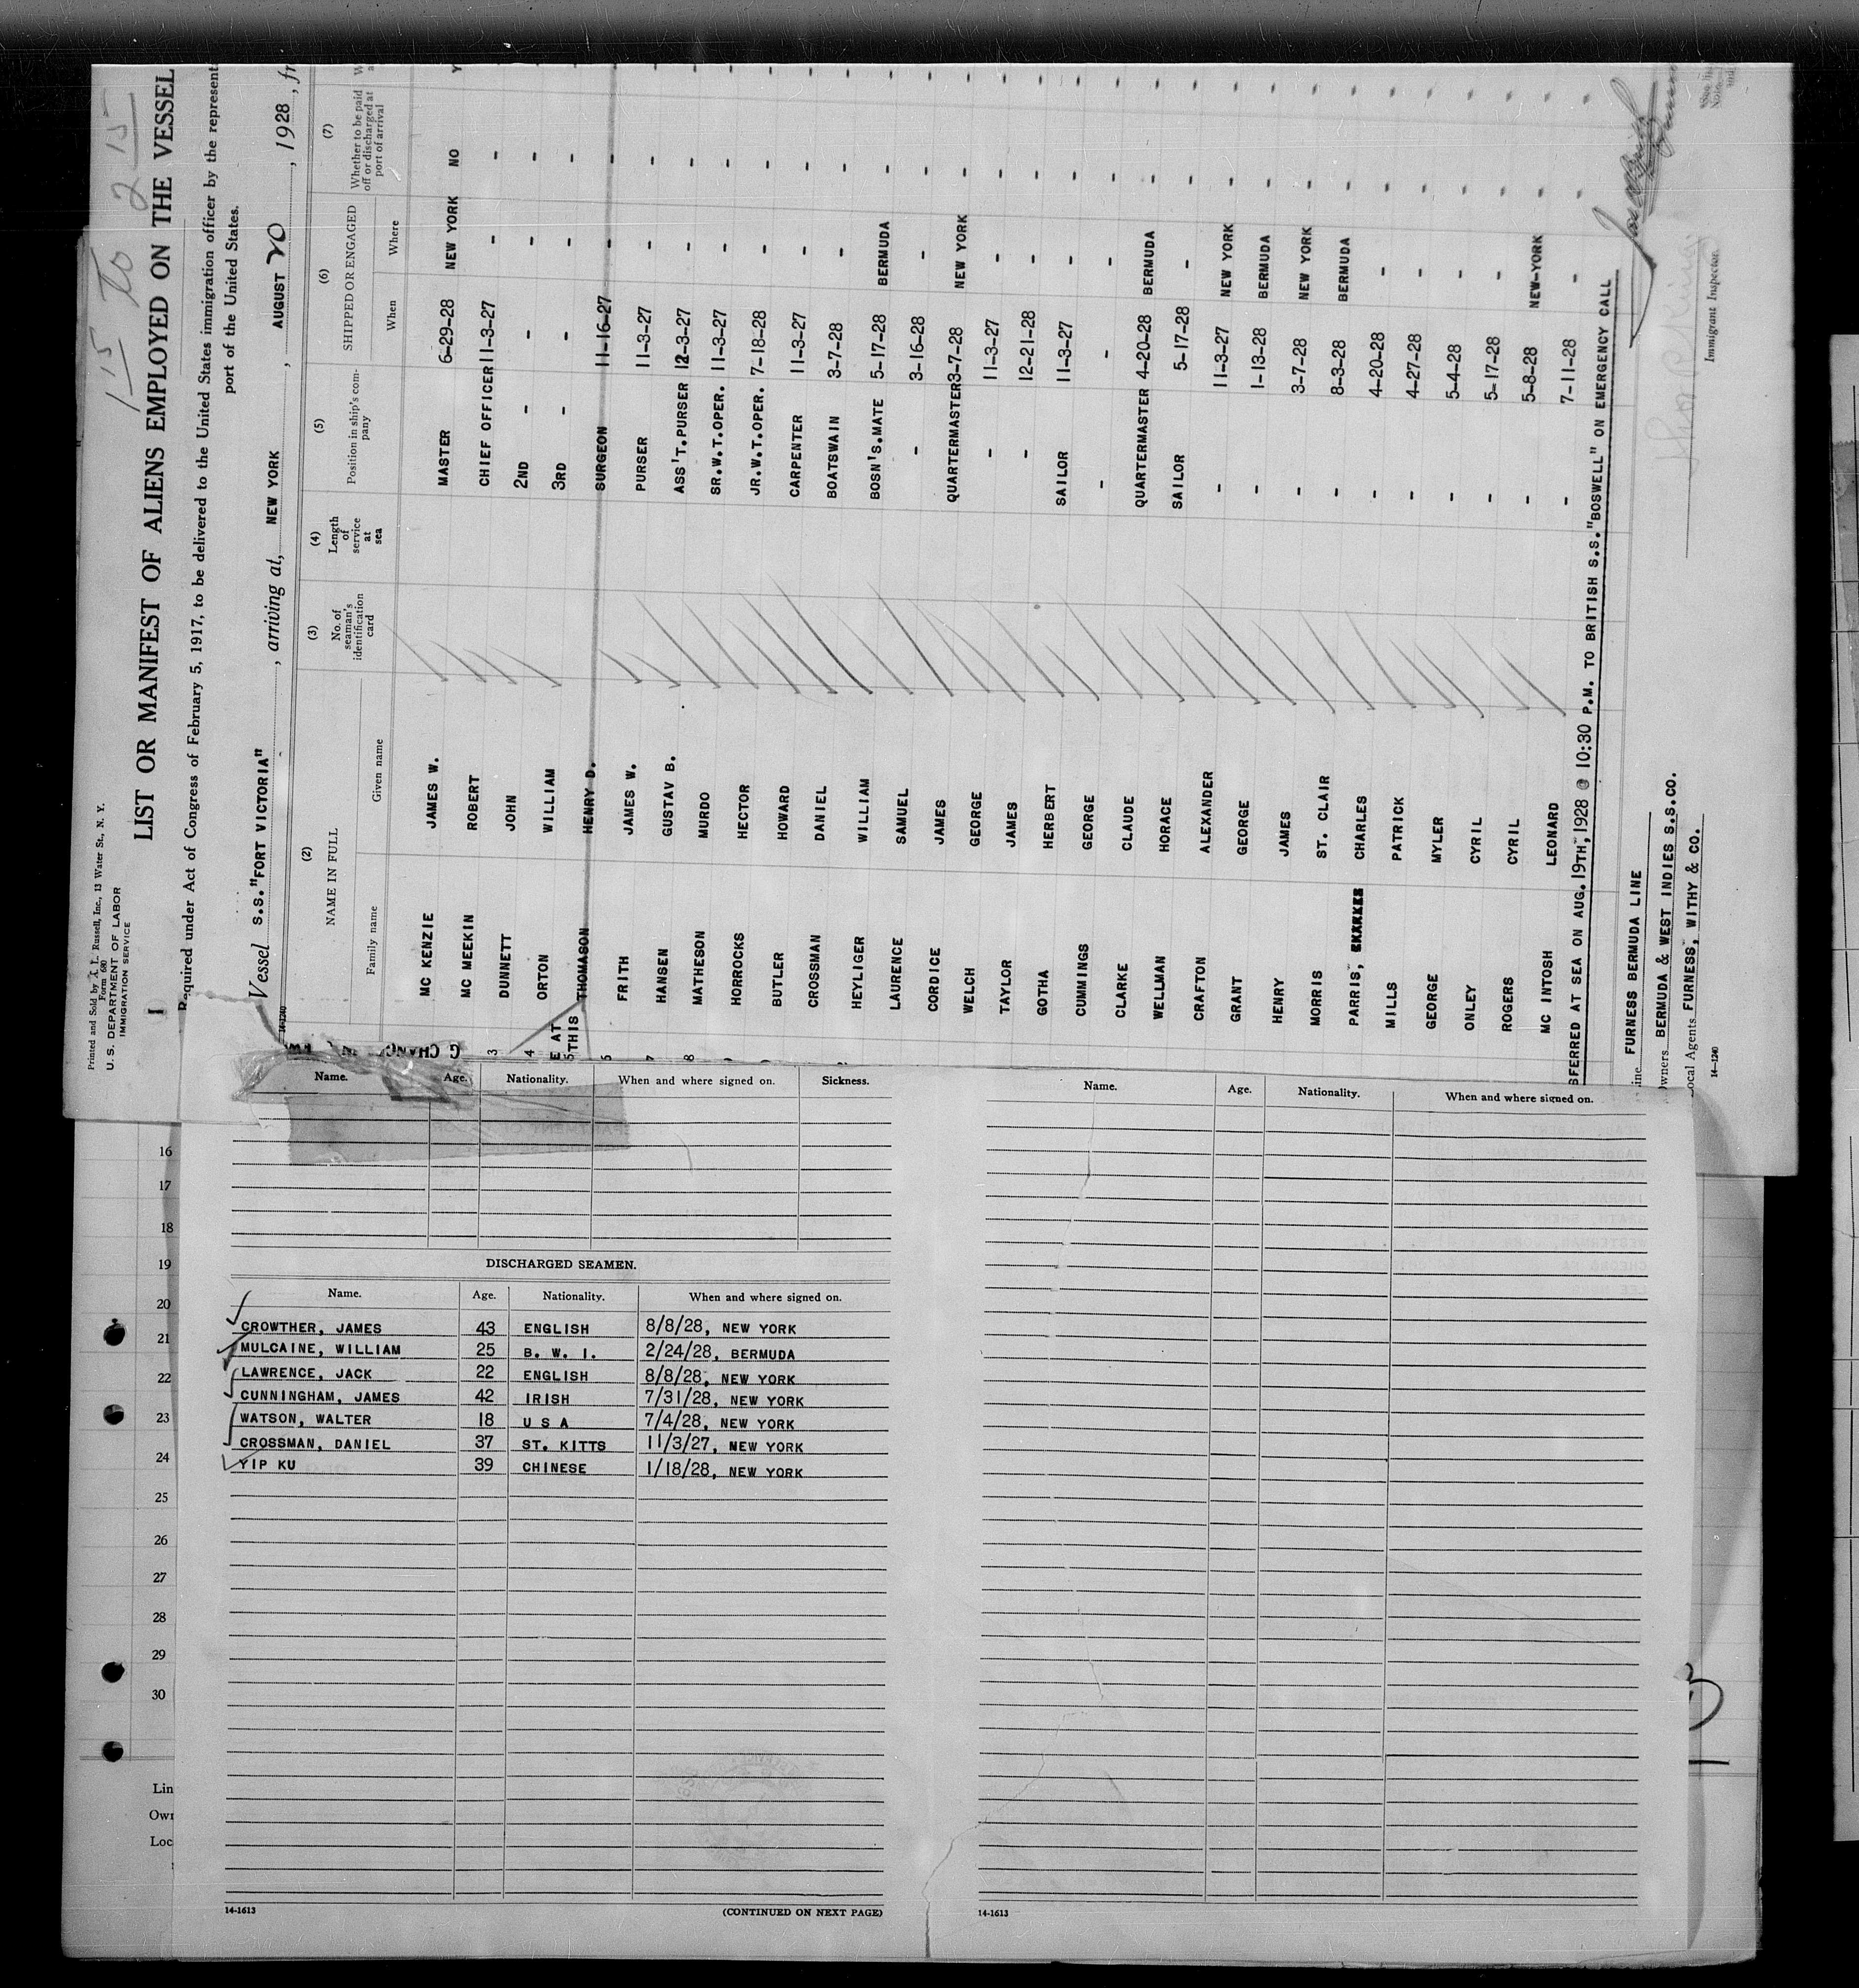 15 To 215
Printed and Sold by A. L. Russell, Inc., 13 Water St., N. Y.
Form 680
U. S. DEPARTMENT OF LABOR
IMMIGRATION SERVICE
LIST OR MANIFEST OF ALIENS EMPLOYED ON THE VESSEL
Required under Act of Congress of February 5, 1917, to be delivered to the United States immigration officer by the represent
port of the United States.
Vessel S.S."FORT VICTORIA" , arriving at, NEW YORK , AUGUST 20 , 1928 , fr
14-1240
(2) (3) (4) (5) (6) (7)
NAME IN FULL No. of seaman's identification card Length of service at sea Position in ship's company SHIPPED OR ENGAGED Whether to be paid off or discharged at port of arrival
Family name Given name When Where
MC KENZIE JAMES W. MASTER 6-29-28 NEW YORK NO Y
MC MEEKIN ROBERT CHIEF OFFICER 11-3-27 - - -
3 DUNNETT JOHN 2ND - - - - -
4 ORTON WILLIAM 3RD - - - - -
5 THOMASON HENRY D. SURGEON 11-16-27 - - -
6 FRITH JAMES W. PURSER 11-3-27 - - -
7 HANSEN GUSTAV B. ASS'T.PURSER 12-3-27 - - -
8 MATHESON MURDO SR.W.T.OPER. 11-3-27 - - -
HORROCKS HECTOR JR.W.T.OPER. 7-18-28 - - -
BUTLER HOWARD CARPENTER 11-3-27 - - -
CROSSMAN DANIEL BOATSWAIN 3-7-28 - - -
HEYLIGER WILLIAM BOSN'S.MATE 5-17-28 BERMUDA - -
LAURENCE SAMUEL - 3-16-28 - - -
CORDICE JAMES QUARTERMASTER 3-7-28 NEW YORK - -
WELCH GEORGE - 11-3-27 - - -
TAYLOR JAMES - 12-21-28 - - -
GOTHA HERBERT SAILOR 11-3-27 - - -
CUMMINGS GEORGE - - - - -
CLARKE CLAUDE QUARTERMASTER 4-20-28 BERMUDA - -
WELLMAN HORACE SAILOR 5-17-28 - - -
CRAFTON ALEXANDER - 11-3-27 NEW YORK - -
GRANT GEORGE - 1-13-28 BERMUDA - -
HENRY JAMES - 3-7-28 NEW YORK - -
MORRIS ST. CLAIR - 8-3-28 BERMUDA - -
PARRIS, CHARLES - 4-20-28 - - -
MILLS PATRICK - 4-27-28 - - -
GEORGE MYLER - 5-4-28 - - -
ONLEY CYRIL - 5-17-28 - - -
ROGERS CYRIL - 5-8-28 NEW-YORK - -
MC INTOSH LEONARD - 7-11-28 - - -
SFERRED AT SEA ON AUG.19TH,1928 @ 10:30 P.M. TO BRITISH S.S."BOSWELL" ON EMERGENCY CALL
ine FURNESS BERMUDA LINE
wners BERMUDA & WEST INDIES S.S.CO.
ocal Agents FURNESS, WITHY & CO.
Immigrant Inspector.
14-1240
E AT
THIS
Name. Age. Nationality. When and where signed on. Sickness.
DISCHARGED SEAMEN.
Name. Age. Nationality. When and where signed on.
CROWTHER, JAMES 43 ENGLISH 8/8/28, NEW YORK
MULCAINE, WILLIAM 25 B. W. I. 2/24/28, BERMUDA
LAWRENCE, JACK 22 ENGLISH 8/8/28, NEW YORK
CUNNINGHAM, JAMES 42 IRISH 7/31/28, NEW YORK
WATSON, WALTER 18 U S A 7/4/28, NEW YORK
CROSSMAN, DANIEL 37 ST. KITTS 11/3/27, NEW YORK
YIP KU 39 CHINESE 1/18/28, NEW YORK
14-1613 (CONTINUED ON NEXT PAGE)
Name. Age. Nationality. When and where signed on.
14-1613
16
17
18
19
20
21
22
23
24
25
26
27
28
29
30
Lin
Own
Loc